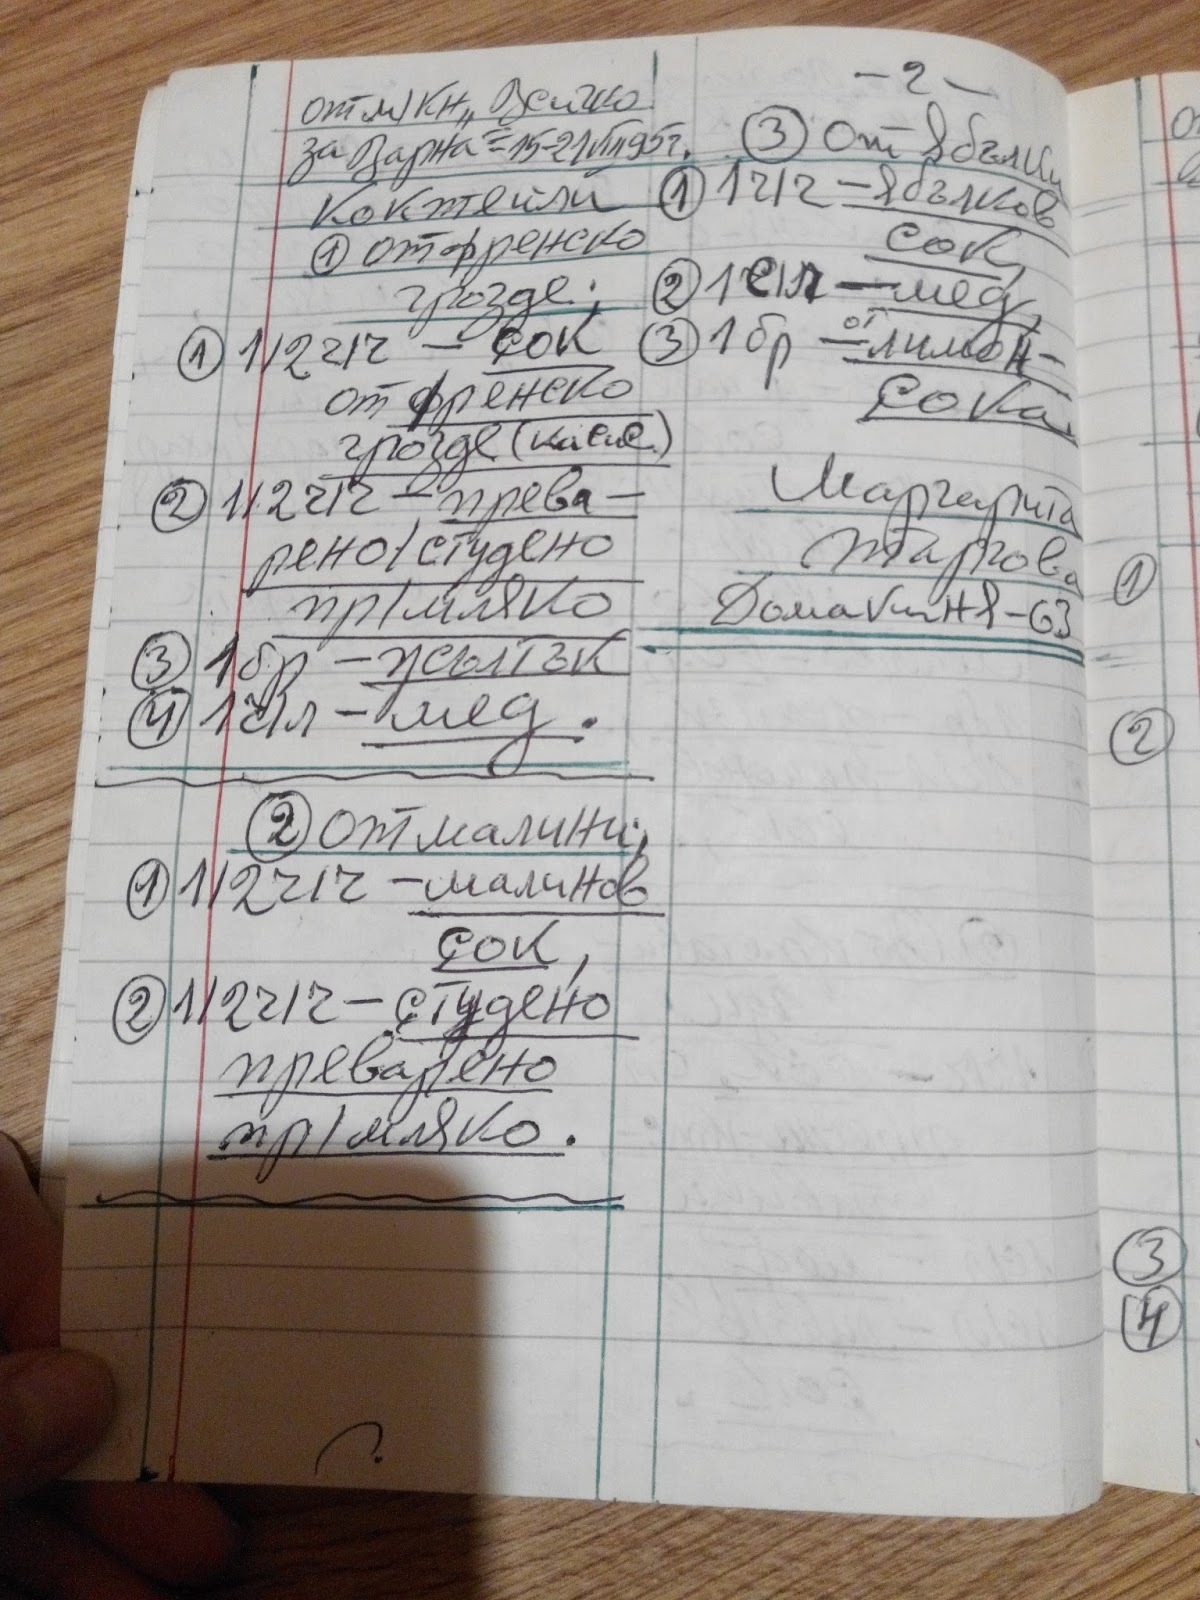 от м/кн „Всичко
за Варна" = 15-21/VIII 95 г.
Коктейли
① от френско
грозде:
① 1/2 ч/ч - сок
от френско
грозде (касис)
② 1/2 ч/ч - прева-
рено/студено
пр/мляко
③ 1 бр - жълтък
④ 1 ч/л - мед.
② от малини;
① 1/2 ч/ч - малинов
сок,
② 1/2 ч/ч - студено
преварено
пр/мляко.
- 2 -
③ от ябълки
① 1 ч/ч - ябълков
сок,
② 1 с/л - мед,
③ 1 бр - от лимон -
сока
Маргарита
Домакиня - 63
①
②
③
④